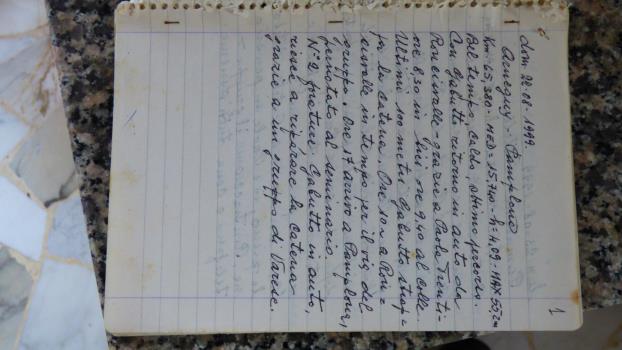 dom. 22.08.1999.
Arneguy - Pamplona
Km. 65,380 - MED = 15,710 - h = 4,09 - MAX 55,
Bel tempo, caldo, ottimo percorso.
Con Gabutti ritorno in auto da
Roncisvalle grazie a Paola Trenti-
ore 8,30 in bici ore 9,40 al Colle.
Ultimi 100 metri Gabutto strap-
pa la catena. Ore 10 a Ronci-
svalle in tempo per il del
gruppo. Ore 17 arrivo a Pamplona,
pernottato al seminario.
N° 2 forature. Gabutto in auto,
riesce a riparare la catena
grazie a un gruppo di Varese.
1